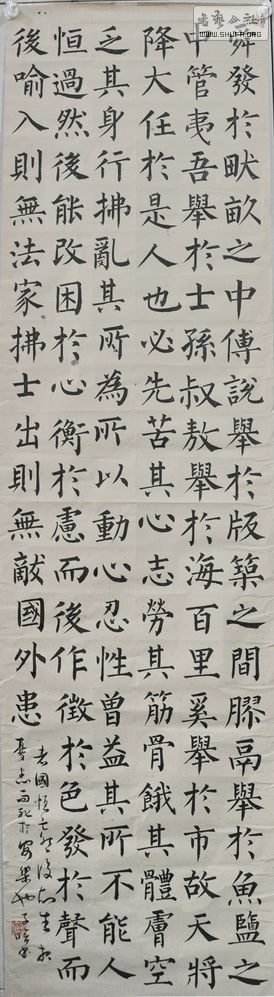 舜發於畎畝之中傅說舉於版築之間膠鬲舉於魚鹽之
中管夷吾舉於士孫叔敖舉於海百里奚舉於市故天將
降大任於是人也必先苦其心志勞其筋骨餓其體膚空
乏其身行拂亂其所為所以動心忍性曾益其所不能人
恒過然後能改困於心衡於慮而後作徵於色發於聲而
後喻入則無法家拂士出則無敵國外患
者國恒亡然後知生於
憂患而死於安樂也